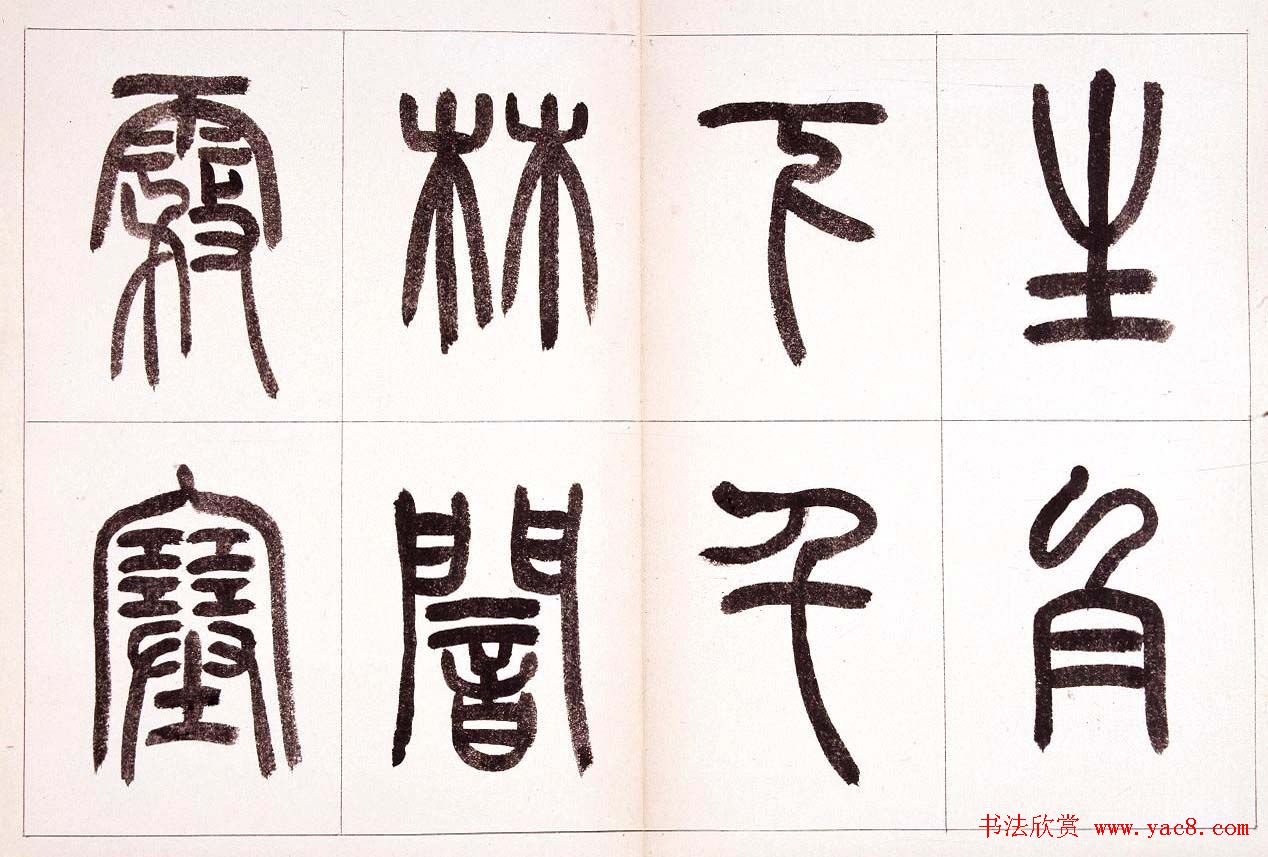 生角
下千
林闇
塞
书法欣赏 www.yac8.com